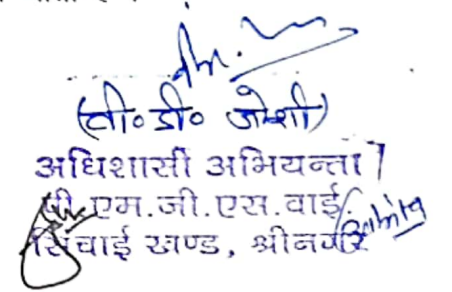 (वी० डी० जोशी)
अधिशासी अभियन्ता
पी.एम.जी.एस.वाई
सिंचाई खण्ड, श्रीनगर